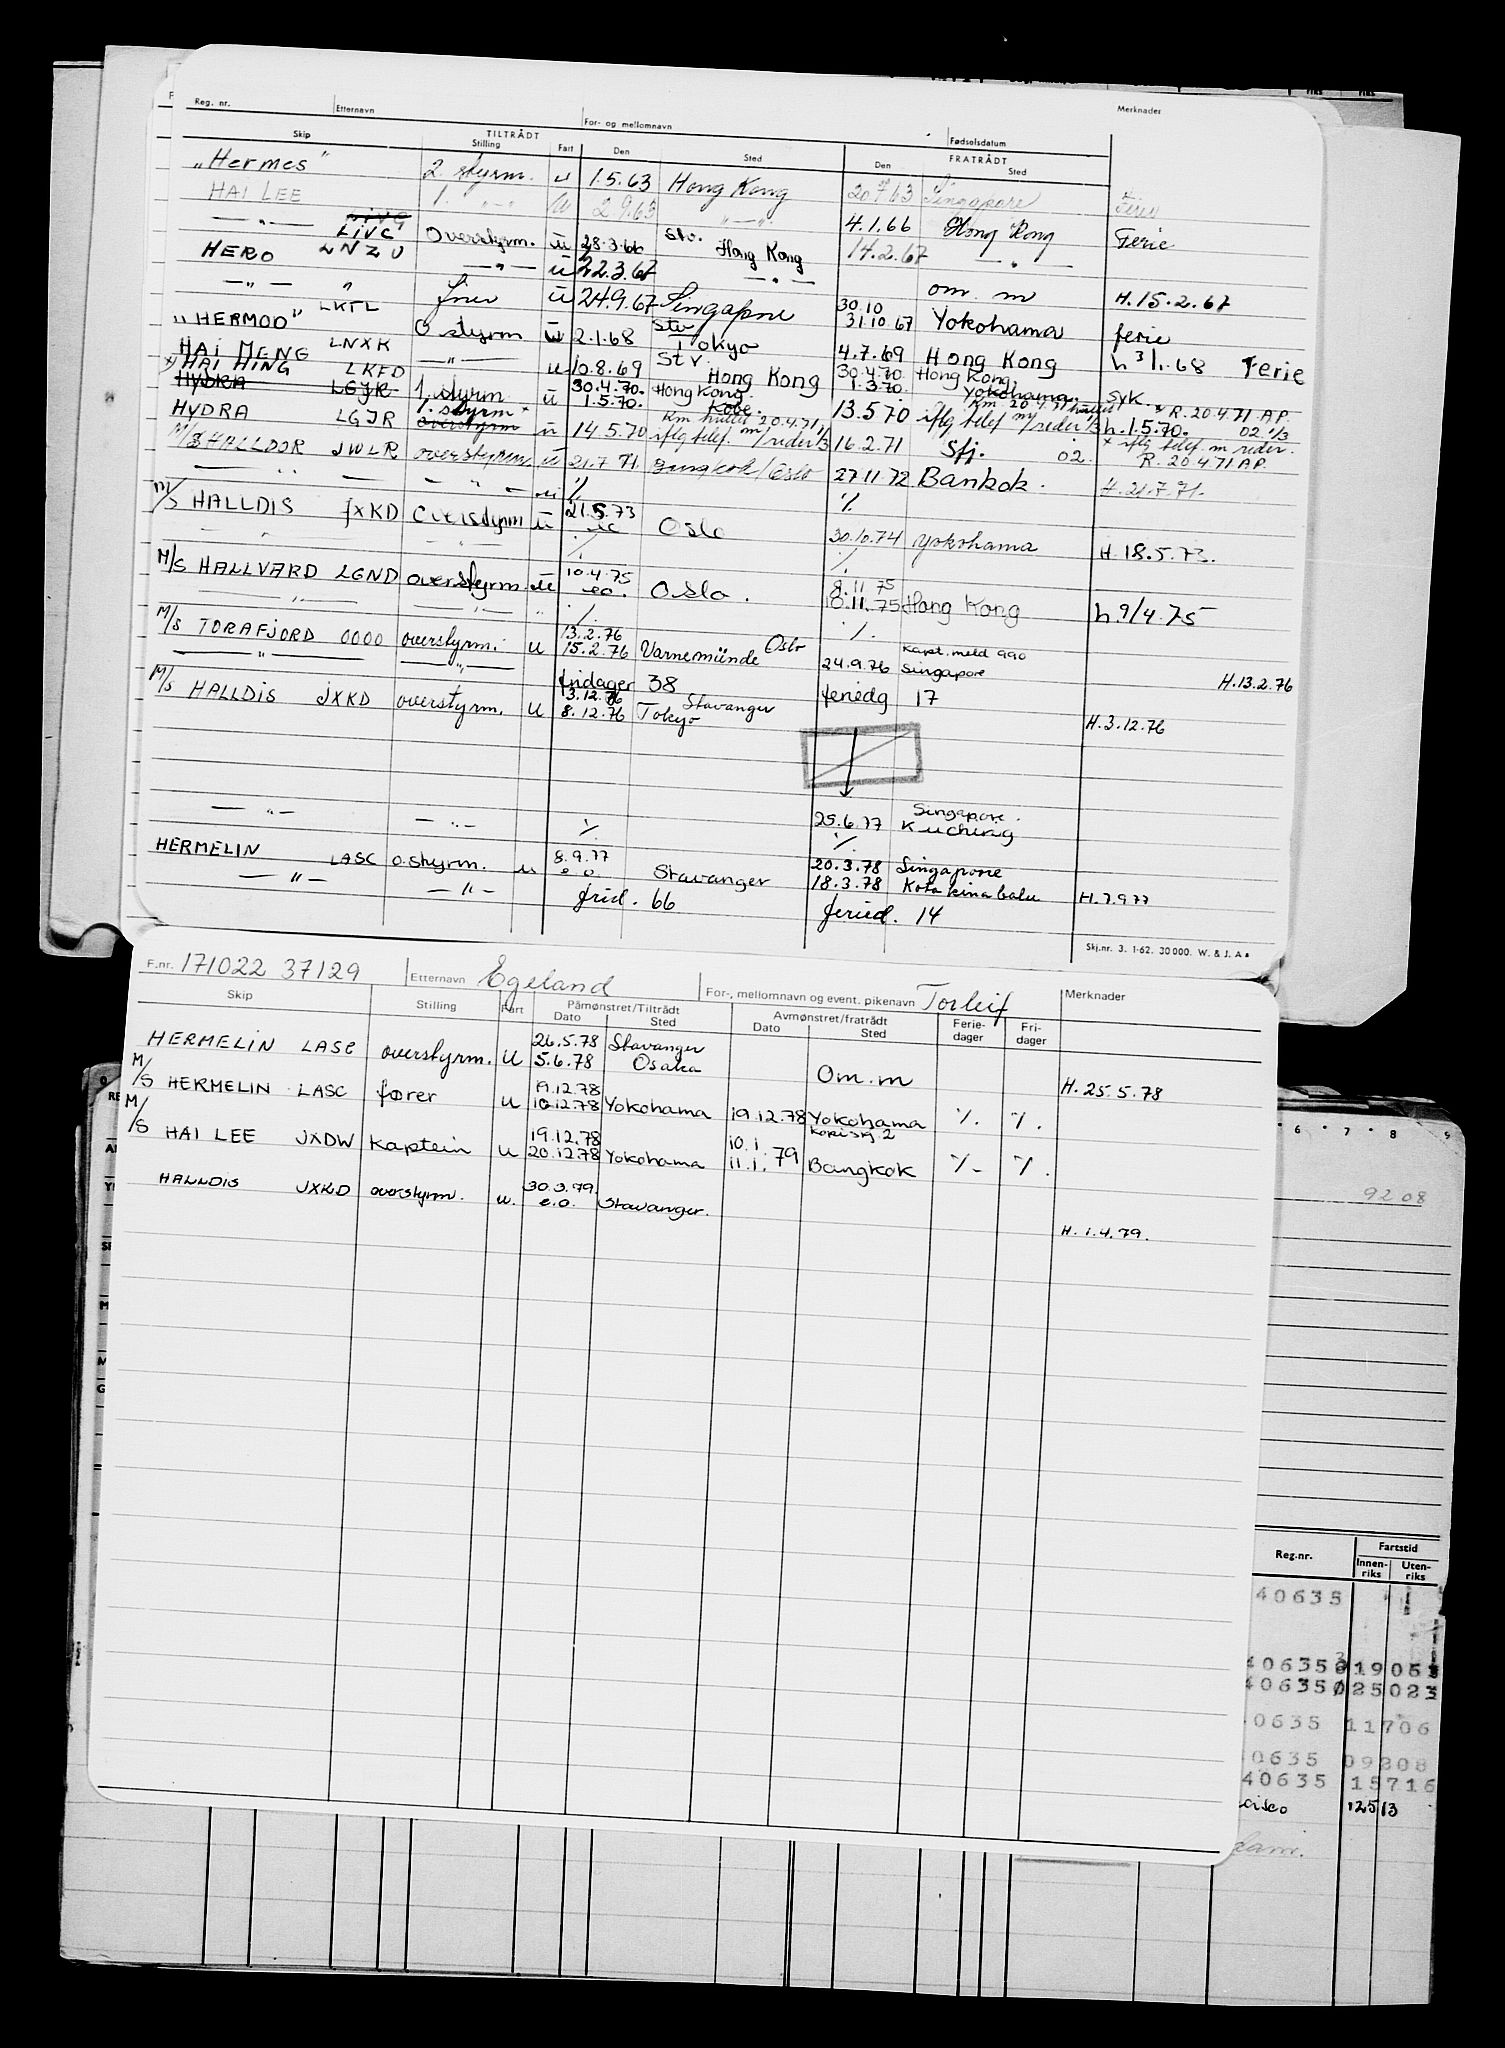 Reg. nr. Etternavn For- og mellomnavn Fødselsdatum Merknader
Skip TILTRÅDT Stilling Fart Den Sted FRATRÅDT Den Sted
"Hermes" 2. styrm. u 1.5.63 Hong Kong 20.7.63 Singapore Ferie
HAI LEE 1. -"- u 2.9.63 -"- 4.1.66 Hong Kong Ferie
-"- LIVC Overstyrm. u 28.3.66 stv. Hong Kong 14.2.67 -"-
HERO LNZU -"- u 22.3.67 -"- om. m H. 15.2.67
-"- " fører u 24.9.67 Singapore 30.10 31.10.67 Yokohama ferie
"HERMOD" LKTL O. styrm u 2.1.68 Stv Tokyo 4.7.69 Hong Kong h 3/1.68 Ferie
HAI MENG LNXK -"- u 10.8.69 Stv. Hong Kong 30.4.70 1.3.70. Hong Kong. Yokohama. syk.
x) HAI HING LKFD 1. styrm u 30.4.70. 1.5.70. Hong Kong. Kobe. 13.5.70 Km 20.4.71 iflg telef m/reder 1/3 h. 1.5.70. x R. 20.4.71 A.P. 02 1/3
HYDRA LGJR
HYDRA LGJR 1. styrm x overstyrm u 14.5.70 Km 20.4.71, iflg telef. m/reder 1/3 16.2.71 Sfj. 02. x iflg telef. m reder. R. 20.4.71 A.P.
M/S HALLDOR JWLR overstyrm u 21.7.71 Bangkok/Oslo 27.11.72 Bankok. H. 21.7.71.
-"- -"- u ./. ./.
M/S HALLDIS JXKD Overstyrm u 21.5.73 eo Oslo 30.10.74 Yokohama H. 18.5.73.
" " ./. ./.
M/S HALLVARD LGND overstyrm. u 10.4.75 eo. Oslo. 8.11.75 10.11.75 Hong Kong h. 9/4.75
-"- -"- " ./. ./.
M/S TORAFJORD 0000 overstyrm. u 13.2.76 15.2.76 Oslo Varnemünde 24.9.76 Kapt. meld 990 Singapore H. 13.2.76
-"- -"- fridager 38 feriedg 17
M/S HALLDIS JXKD overstyrm. u 3.12.76 8.12.76 Stavanger Tokyo H. 3.12.76
-"- -"- ./. 25.6.77 Singapore. Kuching
./.
HERMELIN LASC o.styrm. u 8.9.77 e o Stavanger 20.3.78 18.3.78 Singapore Kota kinabalu H. 7.9.77
-"- -"- frid. 66 feried. 14
Skj.nr. 3. 1-62. 30000. W. & J. A s
F.nr. 171022 37129 Etternavn Egeland For-, mellomnavn og event. pikenavn Torleif Merknader
Skip Stilling Fart Påmønstret/Tiltrådt Dato Sted Avmønstret/fratrådt Dato Sted Ferie-dager Fri-dager
HERMELIN LASC overstyrm. u 26.5.78 5.6.78 Stavanger Osaka Om.m H. 25.5.78
M/S HERMELIN LASC fører u 19.12.78 10.12.78 Yokohama 19.12.78 Yokohama ./. ./.
M/S HAI LEE JXDW Kaptein u 19.12.78 20.12.78 Yokohama 10.1. 11.1.79 Kopi skj 2 Bangkok ./. ./.
HALLDIS JXKD overstyrm. u. 30.3.79. e.o. Stavanger. H. 1.4.79.
6 7 8 9
92 08
Reg.nr. Fartstid
Innen-riks Uten-riks
40635
40635 019051
40635 025023
0635 11706
0635 09808
40635 15716
cisco 12513